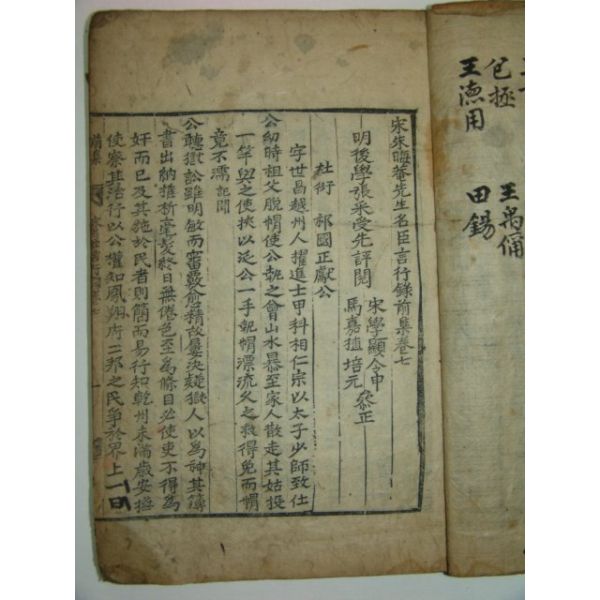 包拯
王德用
王禹偁
田錫
宋朱晦菴先生名臣言行錄前集卷七
明後學張采受先評閱
宋學顯令申
馬嘉植培元
參正
杜衍 祁國正獻公
字世昌越州人擢進士甲科相仁宗以太子少師致仕
公幼時祖父脫帽使公執之會山水暴至家人散走其姑投
一竿與之使挾以泛公一手執帽漂流久之救得免而帽
竟不濡 記聞
公聽獄訟雖明敏而審覈愈精故屢決疑獄人以爲神其簿
書出納推析毫髮終日無倦色至爲條目必使吏不得爲
奸而已及其施於民者則簡而易行知乾州未滿歲安撫
使察其治行以公權知鳳翔府二邦之民爭於界上一曰